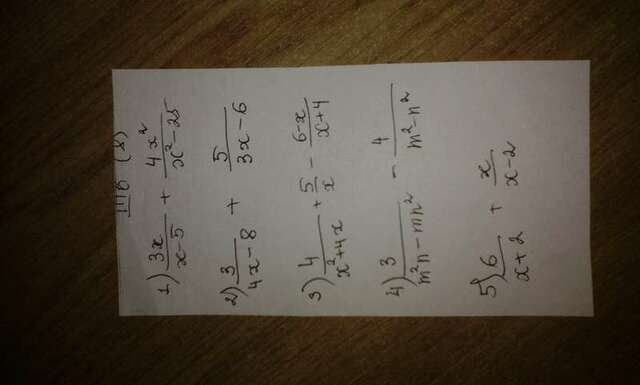 1) 3x/(x-5) + 4x²/(x²-25)
2) 3/(4x-8) + 5/(3x-6)
3) 4/(x²+4x) + 5/x - (6-x)/(x+4)
4) 3/(m²n-mn²) - 4/(m²-n²)
5) 6/(x+2) + x/(x-2)